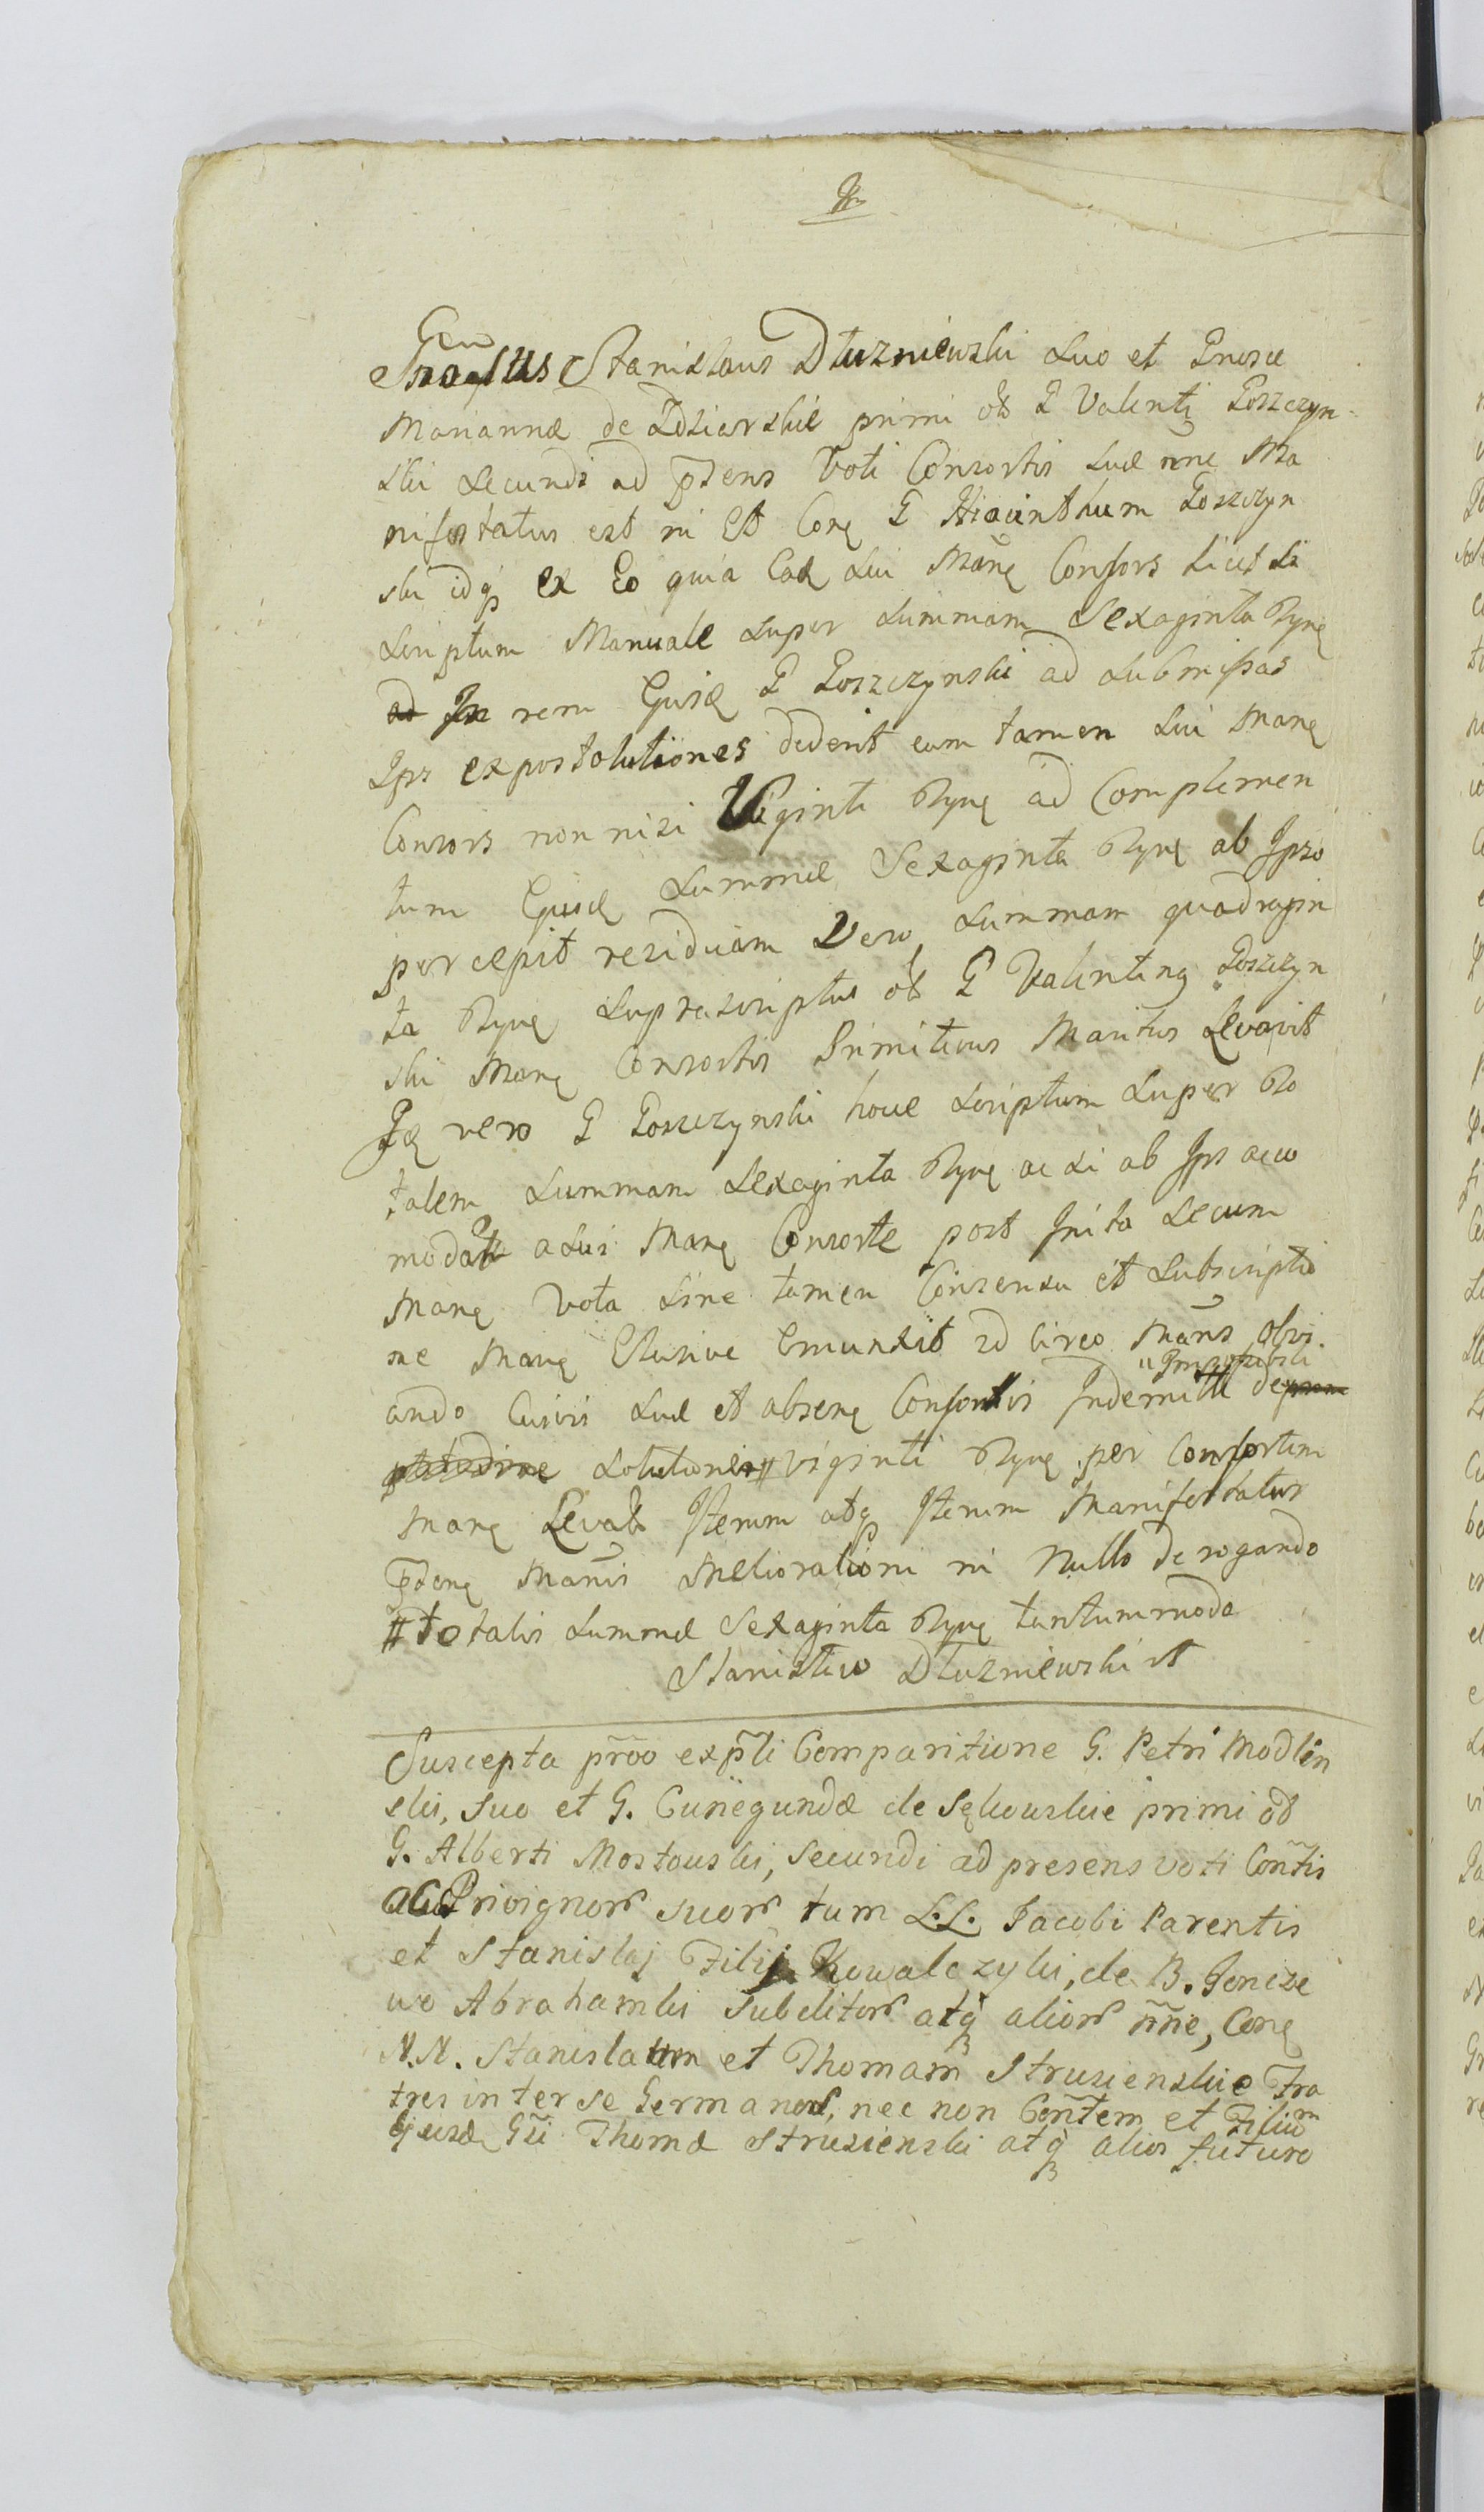 Stanislaus Dłuzniewski suo et Gnosæ
Mariannæ de Zdziarskie primi ob G Valenti Goszczyn
ski secundi ad pđens Voti Consortis suæ nne Ma
nifestatus est in Et Conę G Hiacinthum Goszczyn
ski idqꝫ ex Eo quia Ead sui Manę Consors licet si
scriptum Manuale super summam Sexaginta Rynę
ad In rem Ejusd G Goszczynski ad submissas
Ips expostolationes dederit eam tamen sui Manę
Consors non nisi Viginti Rynę ad Complemen
tum Ejusd summæ Sexaginta Rynę ab Ipso
percepit residuam Vero summam quadragin
ta Rynę suprascriptus ob G Valentinę Goszczyn
ski Manę Consortis Primitivus Maritus Levavit
Id vero G Goszczynski hocce scriptum super To
talem summam sexaginta Rynę ac si ab Ips acco
modat a sui Manę Consorte post Inita secum
Manę Vota sine tamen Consensu et subscriptio
ne Manę Elusive Emunxit id circo Mańs obvi
ando Cuivis suæ et absenę Consortis Indemitti de
solutione # viginti Rynę per Consortem
Manę Levat Iterum atqꝫ Iterum Manifestatur
pđenę Mańis Melioratiōni in Nullo derogando
# totalis summæ Sexaginta Rynę tantummodo
Stanisław Dłuzniewski
Suscepta prōo exp̃li Comparitione G. Petri Modlin
ski, suo et G. Cunegundæ de Sękowskie primi ob
G. Alberti Mostowski, secundi ad presens voti Con̄tis
ac Privignorꝫ suorꝫ tum L.L. Jacobi Parentis
et Stanislaj Filij Kowalczyki, de B. Goncze
wo Abrahamki subditorꝫ atqꝫ aliorꝫ nn̄e, Conę
N.N. Stanislaum et Thomam Strusienskie Fra
tres inter se Germanos, nec non Con̄tem et Filium
Ejusd Gsi Thomæ Strusienski atqꝫ alios futuro